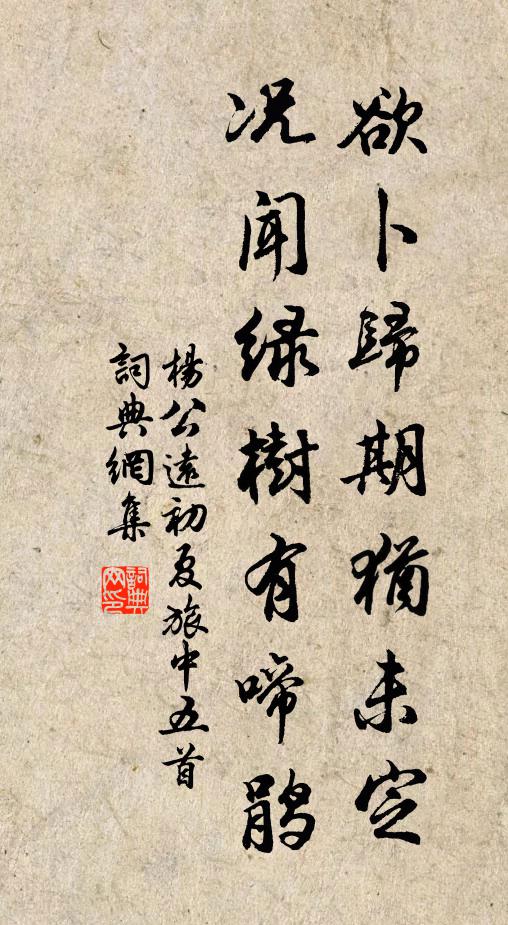 欲卜歸期猶未定
况聞緑樹有啼鵑
楊公遠初夏旅中五首
詞典網集
詞典
网印